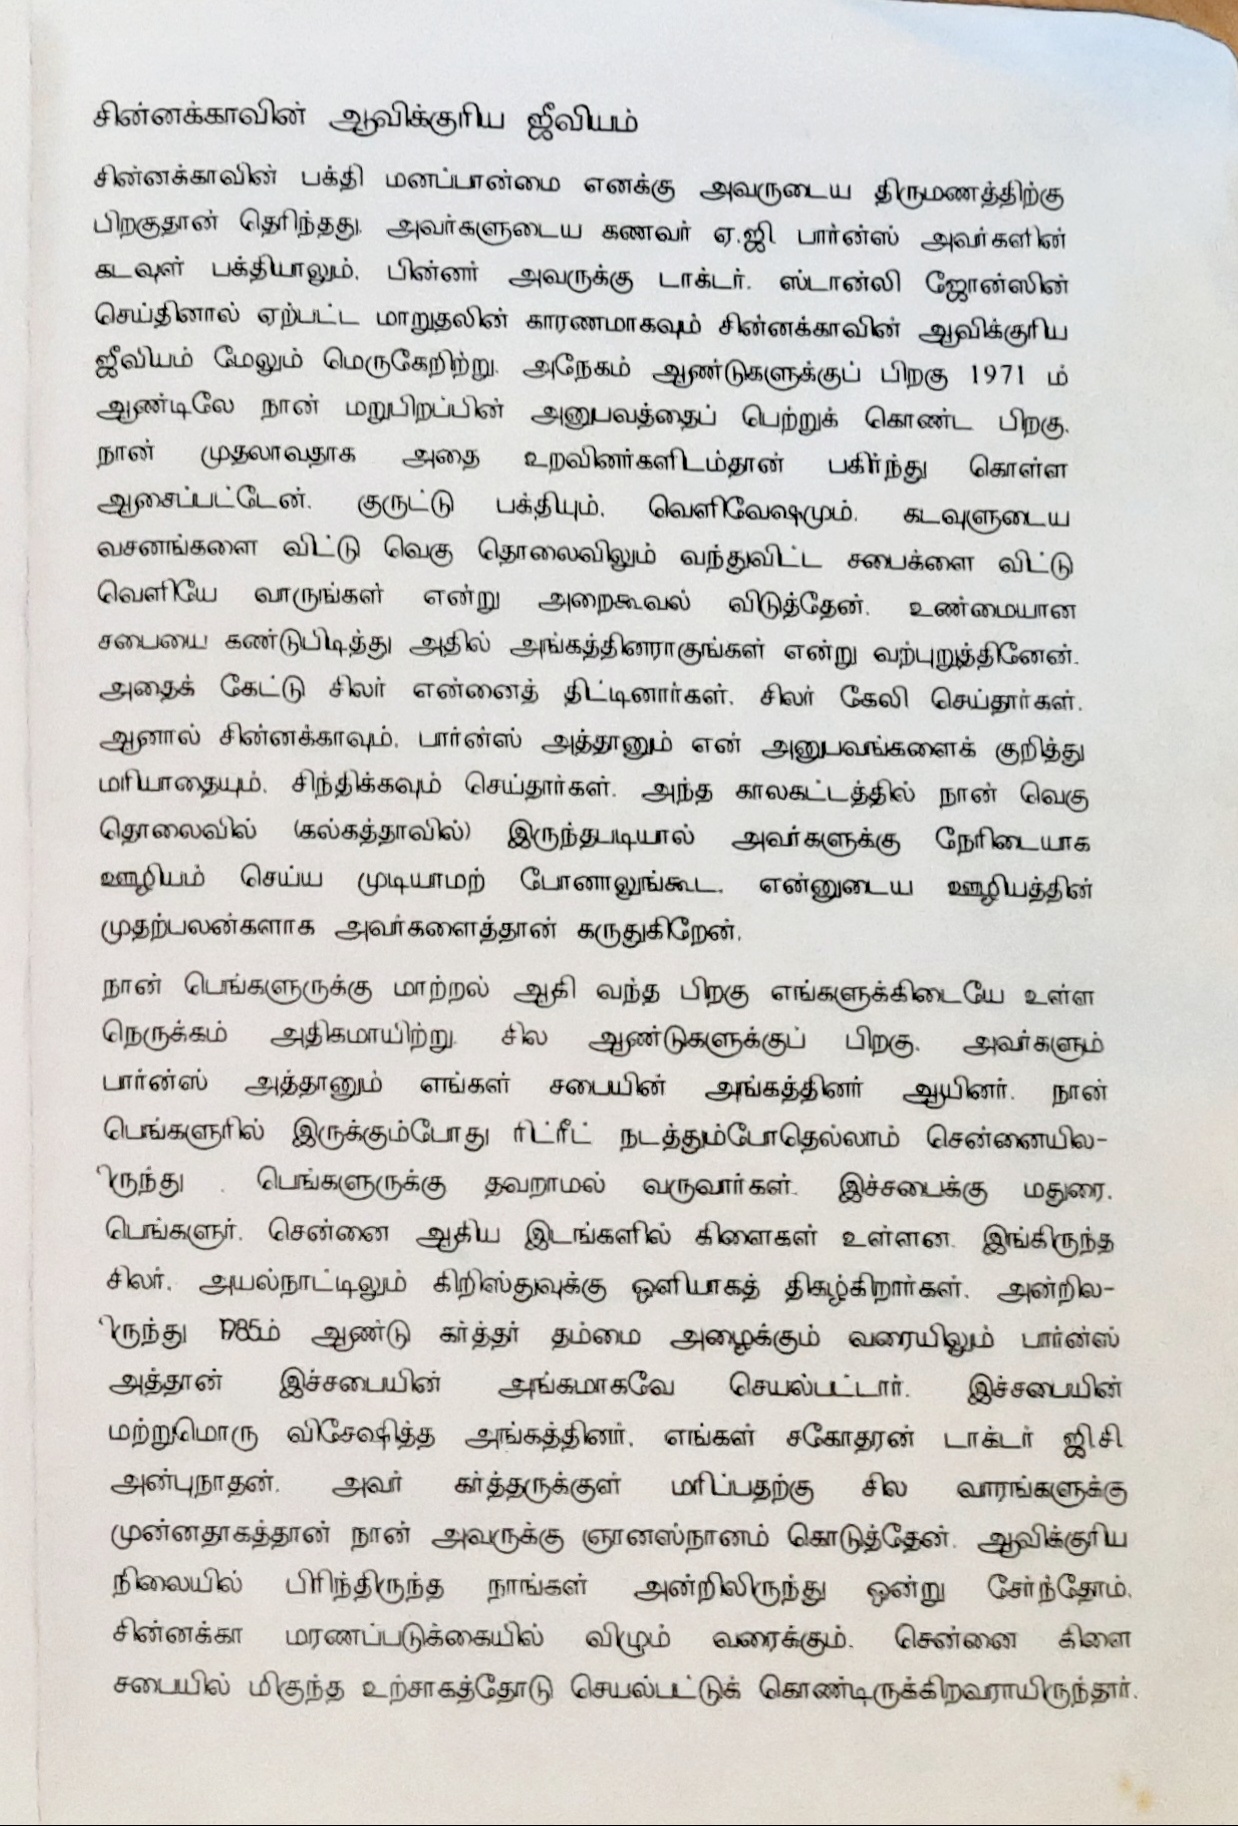 சின்னக்காவின் ஆவிக்குரிய ஜீவியம்
சின்னக்காவின் பக்தி மனப்பான்மை எனக்கு அவருடைய திருமணத்திற்கு
பிறகுதான் தெரிந்தது. அவர்களுடைய கணவர் ஏ.ஜி. பார்ன்ஸ் அவர்களின்
கடவுள் பக்தியாலும், பின்னர் அவருக்கு டாக்டர். ஸ்டான்லி ஜோன்ஸின்
செய்தினால் ஏற்பட்ட மாறுதலின் காரணமாகவும் சின்னக்காவின் ஆவிக்குரிய
ஜீவியம் மேலும் மெருகேறிற்று. அநேகம் ஆண்டுகளுக்குப் பிறகு 1971 ம்
ஆண்டிலே நான் மறுபிறப்பின் அனுபவத்தைப் பெற்றுக் கொண்ட பிறகு,
நான் முதலாவதாக அதை உறவினர்களிடம்தான் பகிர்ந்து கொள்ள
ஆசைப்பட்டேன். குருட்டு பக்தியும், வெளிவேஷமும், கடவுளுடைய
வசனங்களை விட்டு வெகு தொலைவிலும் வந்துவிட்ட சபைக்ளை விட்டு
வெளியே வாருங்கள் என்று அறைகூவல் விடுத்தேன். உண்மையான
சபையை கண்டுபிடித்து அதில் அங்கத்தினராகுங்கள் என்று வற்புறுத்தினேன்.
அதைக் கேட்டு சிலர் என்னைத் திட்டினார்கள். சிலர் கேலி செய்தார்கள்.
ஆனால் சின்னக்காவும், பார்ன்ஸ் அத்தானும் என் அனுபவங்களைக் குறித்து
மரியாதையும், சிந்திக்கவும் செய்தார்கள். அந்த காலகட்டத்தில் நான் வெகு
தொலைவில் (கல்கத்தாவில்) இருந்தபடியால் அவர்களுக்கு நேரிடையாக
ஊழியம் செய்ய முடியாமற் போனாலுங்கூட, என்னுடைய ஊழியத்தின்
முதற்பலன்களாக அவர்களைத்தான் கருதுகிறேன்.
நான் பெங்களுருக்கு மாற்றல் ஆகி வந்த பிறகு எங்களுக்கிடையே உள்ள
நெருக்கம் அதிகமாயிற்று. சில ஆண்டுகளுக்குப் பிறகு, அவர்களும்
பார்ன்ஸ் அத்தானும் எங்கள் சபையின் அங்கத்தினர் ஆயினர். நான்
பெங்களுரில் இருக்கும்போது ரிட்ரீட் நடத்தும்போதெல்லாம் சென்னையில-
ிருந்து . பெங்களுருக்கு தவறாமல் வருவார்கள். இச்சபைக்கு மதுரை,
பெங்களுர், சென்னை ஆகிய இடங்களில் கிளைகள் உள்ளன. இங்கிருந்த
சிலர், அயல்நாட்டிலும் கிறிஸ்துவுக்கு ஒளியாகத் திகழ்கிறார்கள். அன்றில-
ிருந்து 1985ம் ஆண்டு கர்த்தர் தம்மை அழைக்கும் வரையிலும் பார்ன்ஸ்
அத்தான் இச்சபையின் அங்கமாகவே செயல்பட்டார். இச்சபையின்
மற்றுமொரு விசேஷித்த அங்கத்தினர், எங்கள் சகோதரன் டாக்டர் ஜி.சி
அன்புநாதன். அவர் கர்த்தருக்குள் மரிப்பதற்கு சில வாரங்களுக்கு
முன்னதாகத்தான் நான் அவருக்கு ஞானஸ்நானம் கொடுத்தேன். ஆவிக்குரிய
நிலையில் பிரிந்திருந்த நாங்கள் அன்றிலிருந்து ஒன்று சேர்ந்தோம்.
சின்னக்கா மரணப்படுக்கையில் விழும் வரைக்கும், சென்னை கிளை
சபையில் மிகுந்த உற்சாகத்தோடு செயல்பட்டுக் கொண்டிருக்கிறவராயிருந்தார்.